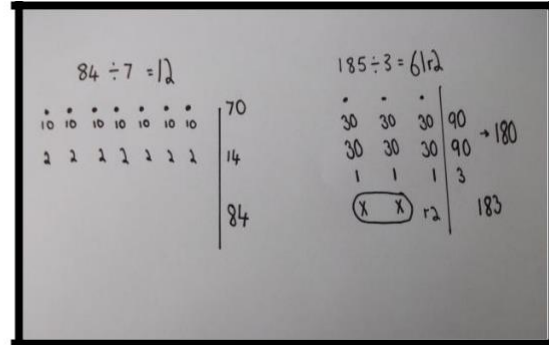 84 ÷ 7 = 12
• • • • • • • 70
10 10 10 10 10 10 10
2 2 2 2 2 2 2 14
84
185 ÷ 3 = 61r2
• • •
30 30 30 90
→ 180
30 30 30 90
1 1 1 3
x x r2 183